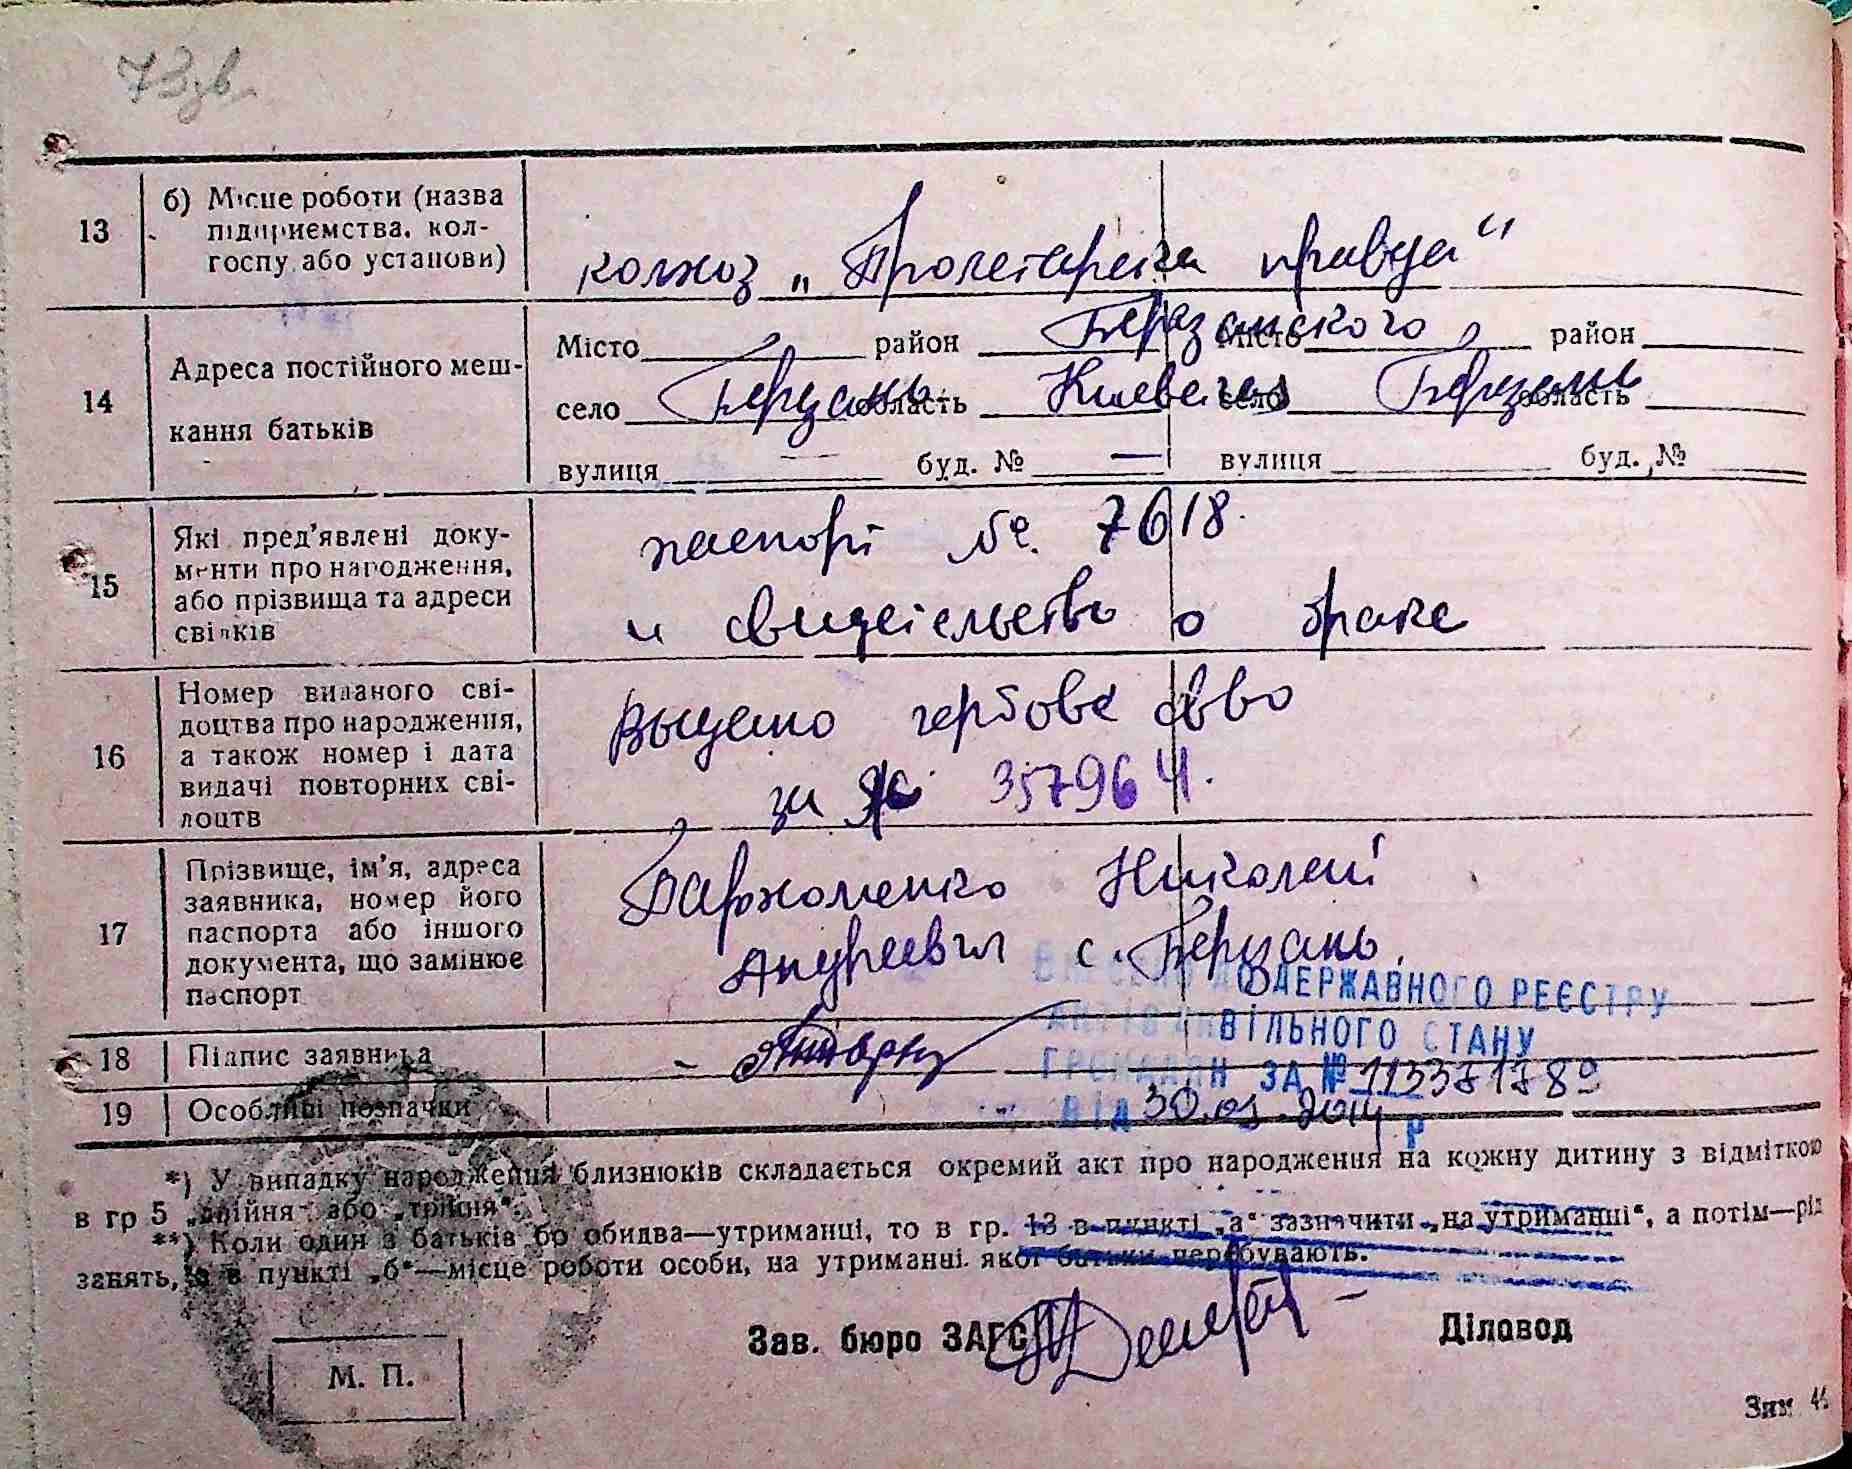 73 зв.
13
б) Місце роботи (назва
підприємства, кол-
госпу або установи)
колхоз „Пролетарська правда“
14
Адреса постійного меш-
кання батьків
Місто район Березанського Місто район
село Березань область Киевська село Березань область
вулиця — буд. № — вулиця буд. №
15
Які пред'явлені доку-
менти про народження,
або прізвища та адреси
свідків
паспорт №. 7618.
и свидетельство о браке
16
Номер виданого сві-
доцтва про народження,
а також номер і дата
видачі повторних сві-
доцтв
Выдано гербове св-во
за № 357964.
17
Прізвище, ім'я, адреса
заявника, номер його
паспорта або іншого
документа, що замінює
паспорт
Пархоменко Николай
Андреевич с. Березань.
18
Підпис заявника
19
Особливі позначки
ВНЕСЕНО ДО ДЕРЖАВНОГО РЕЄСТРУ
АКТІВ ЦИВІЛЬНОГО СТАНУ
ГРОМАДЯН ЗА №
ВІД 30.05.2014 Р
*) У випадку народження близнюків складається окремий акт про народження на кожну дитину з відміткою
в гр 5 „двійня“ або „трійня“.
**) Коли один з батьків бо обидва—утриманці, то в гр. 13 в пункті „а“ зазначити „на утриманні“, а потім—рід
занять, а в пункті „б“—місце роботи особи, на утриманні якої батьки перебувають.
Зав. бюро ЗАГС
Діловод
М. П.